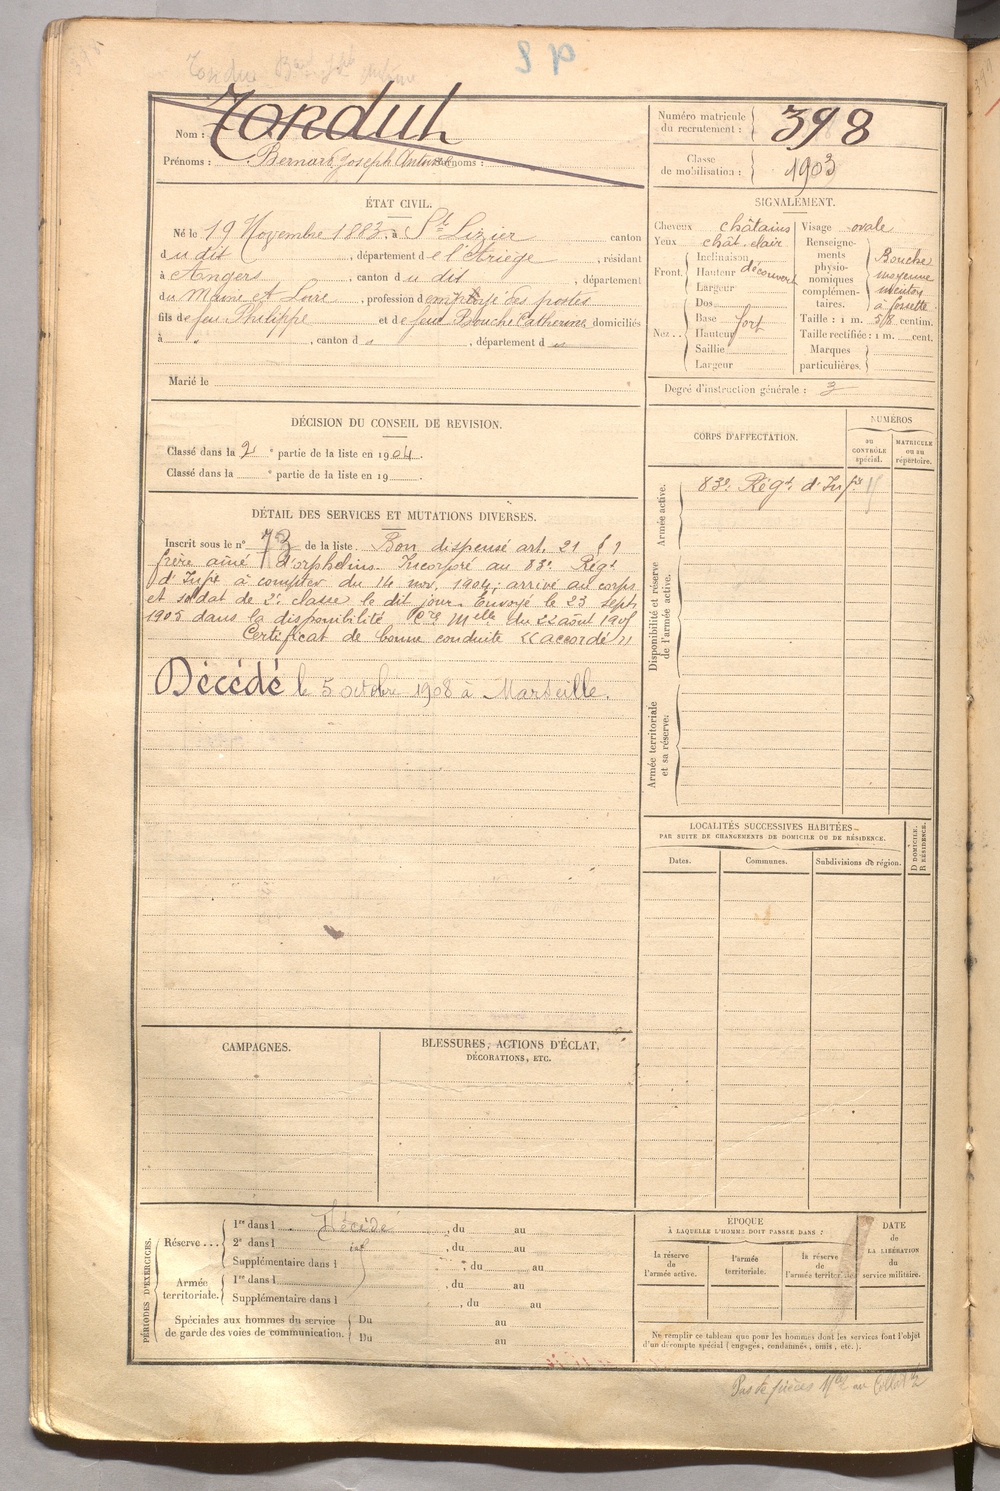 S P
Tondu
Nom : Tonduh
Prénoms : Bernard Joseph Antoine
Numéro matricule du recrutement : 398
Classe de mobilisation : 1903
ÉTAT CIVIL.
Né le 19 Novembre 1883, à St Lizier canton
du dit, département de l'Ariège, résidant
à Angers, canton du dit, département
du Maine et Loire, profession d'employé des postes
fils de feu Philippe et de feu Bouche Catherine domiciliés
à " , canton d " , département d "
Marié le
SIGNALEMENT.
Cheveux châtains
Yeux chât. clair
Front. Inclinaison
Hauteur découvert
Largeur
Nez. Dos
Base fort
Hauteur
Saillie
Largeur
Visage ovale
Renseignements physionomiques complémentaires. Bouche moyenne menton à fossette
Taille : 1 m. 58 centim.
Taille rectifiée : 1 m. cent.
Marques particulières.
Degré d'instruction générale : 3
DÉCISION DU CONSEIL DE REVISION.
Classé dans la 2e partie de la liste en 1904.
Classé dans la e partie de la liste en 19
DÉTAIL DES SERVICES ET MUTATIONS DIVERSES.
Inscrit sous le n° 73 de la liste Bon dispensé art. 21 § 1
frère aîné d'orphelins. Incorporé au 83e Régt
d'Infie à compter du 14 nov. 1904; arrivé au corps
et soldat de 2e classe le dit jour. Envoyé le 23 sept
1905 dans la disponibilité Cre Melle du 22 août 1905
Certificat de bonne conduite "accordé"
Décédé le 5 octobre 1908 à Marseille.
CORPS D'AFFECTATION.
NUMÉROS
DU CONTRÔLE spécial.
MATRICULE OU DU répertoire.
Armée active.
83e Régt d'Infie
Disponibilité et réserve de l'armée active.
Armée territoriale et sa réserve.
LOCALITÉS SUCCESSIVES HABITÉES
PAR SUITE DE CHANGEMENTS DE DOMICILE OU DE RÉSIDENCE.
Dates.
Communes.
Subdivisions de région.
D DOMICILE.
R RÉSIDENCE.
CAMPAGNES.
BLESSURES, ACTIONS D'ÉCLAT,
DÉCORATIONS, ETC.
PÉRIODES D'EXERCICES.
Réserve... 1re dans l Décédé , du au
2e dans l , du au
Supplémentaire dans l , du au
Armée territoriale. 1re dans l , du au
Supplémentaire dans l , du au
Spéciales aux hommes du service de garde des voies de communication. Du au
Du au
ÉPOQUE
À LAQUELLE L'HOMME DOIT PASSER DANS :
la réserve de l'armée active.
l'armée territoriale.
la réserve de l'armée territoriale
DATE de LA LIBÉRATION du service militaire.
Ne remplir ce tableau que pour les hommes dont les services font l'objet
d'un décompte spécial (engagés, condamnés, omis, etc.).
Pas de pièces